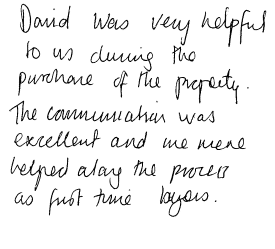 David was very helpful
to us during the
purchase of the property.
The communication was
excellent and we were
helped along the process
as first time buyers.